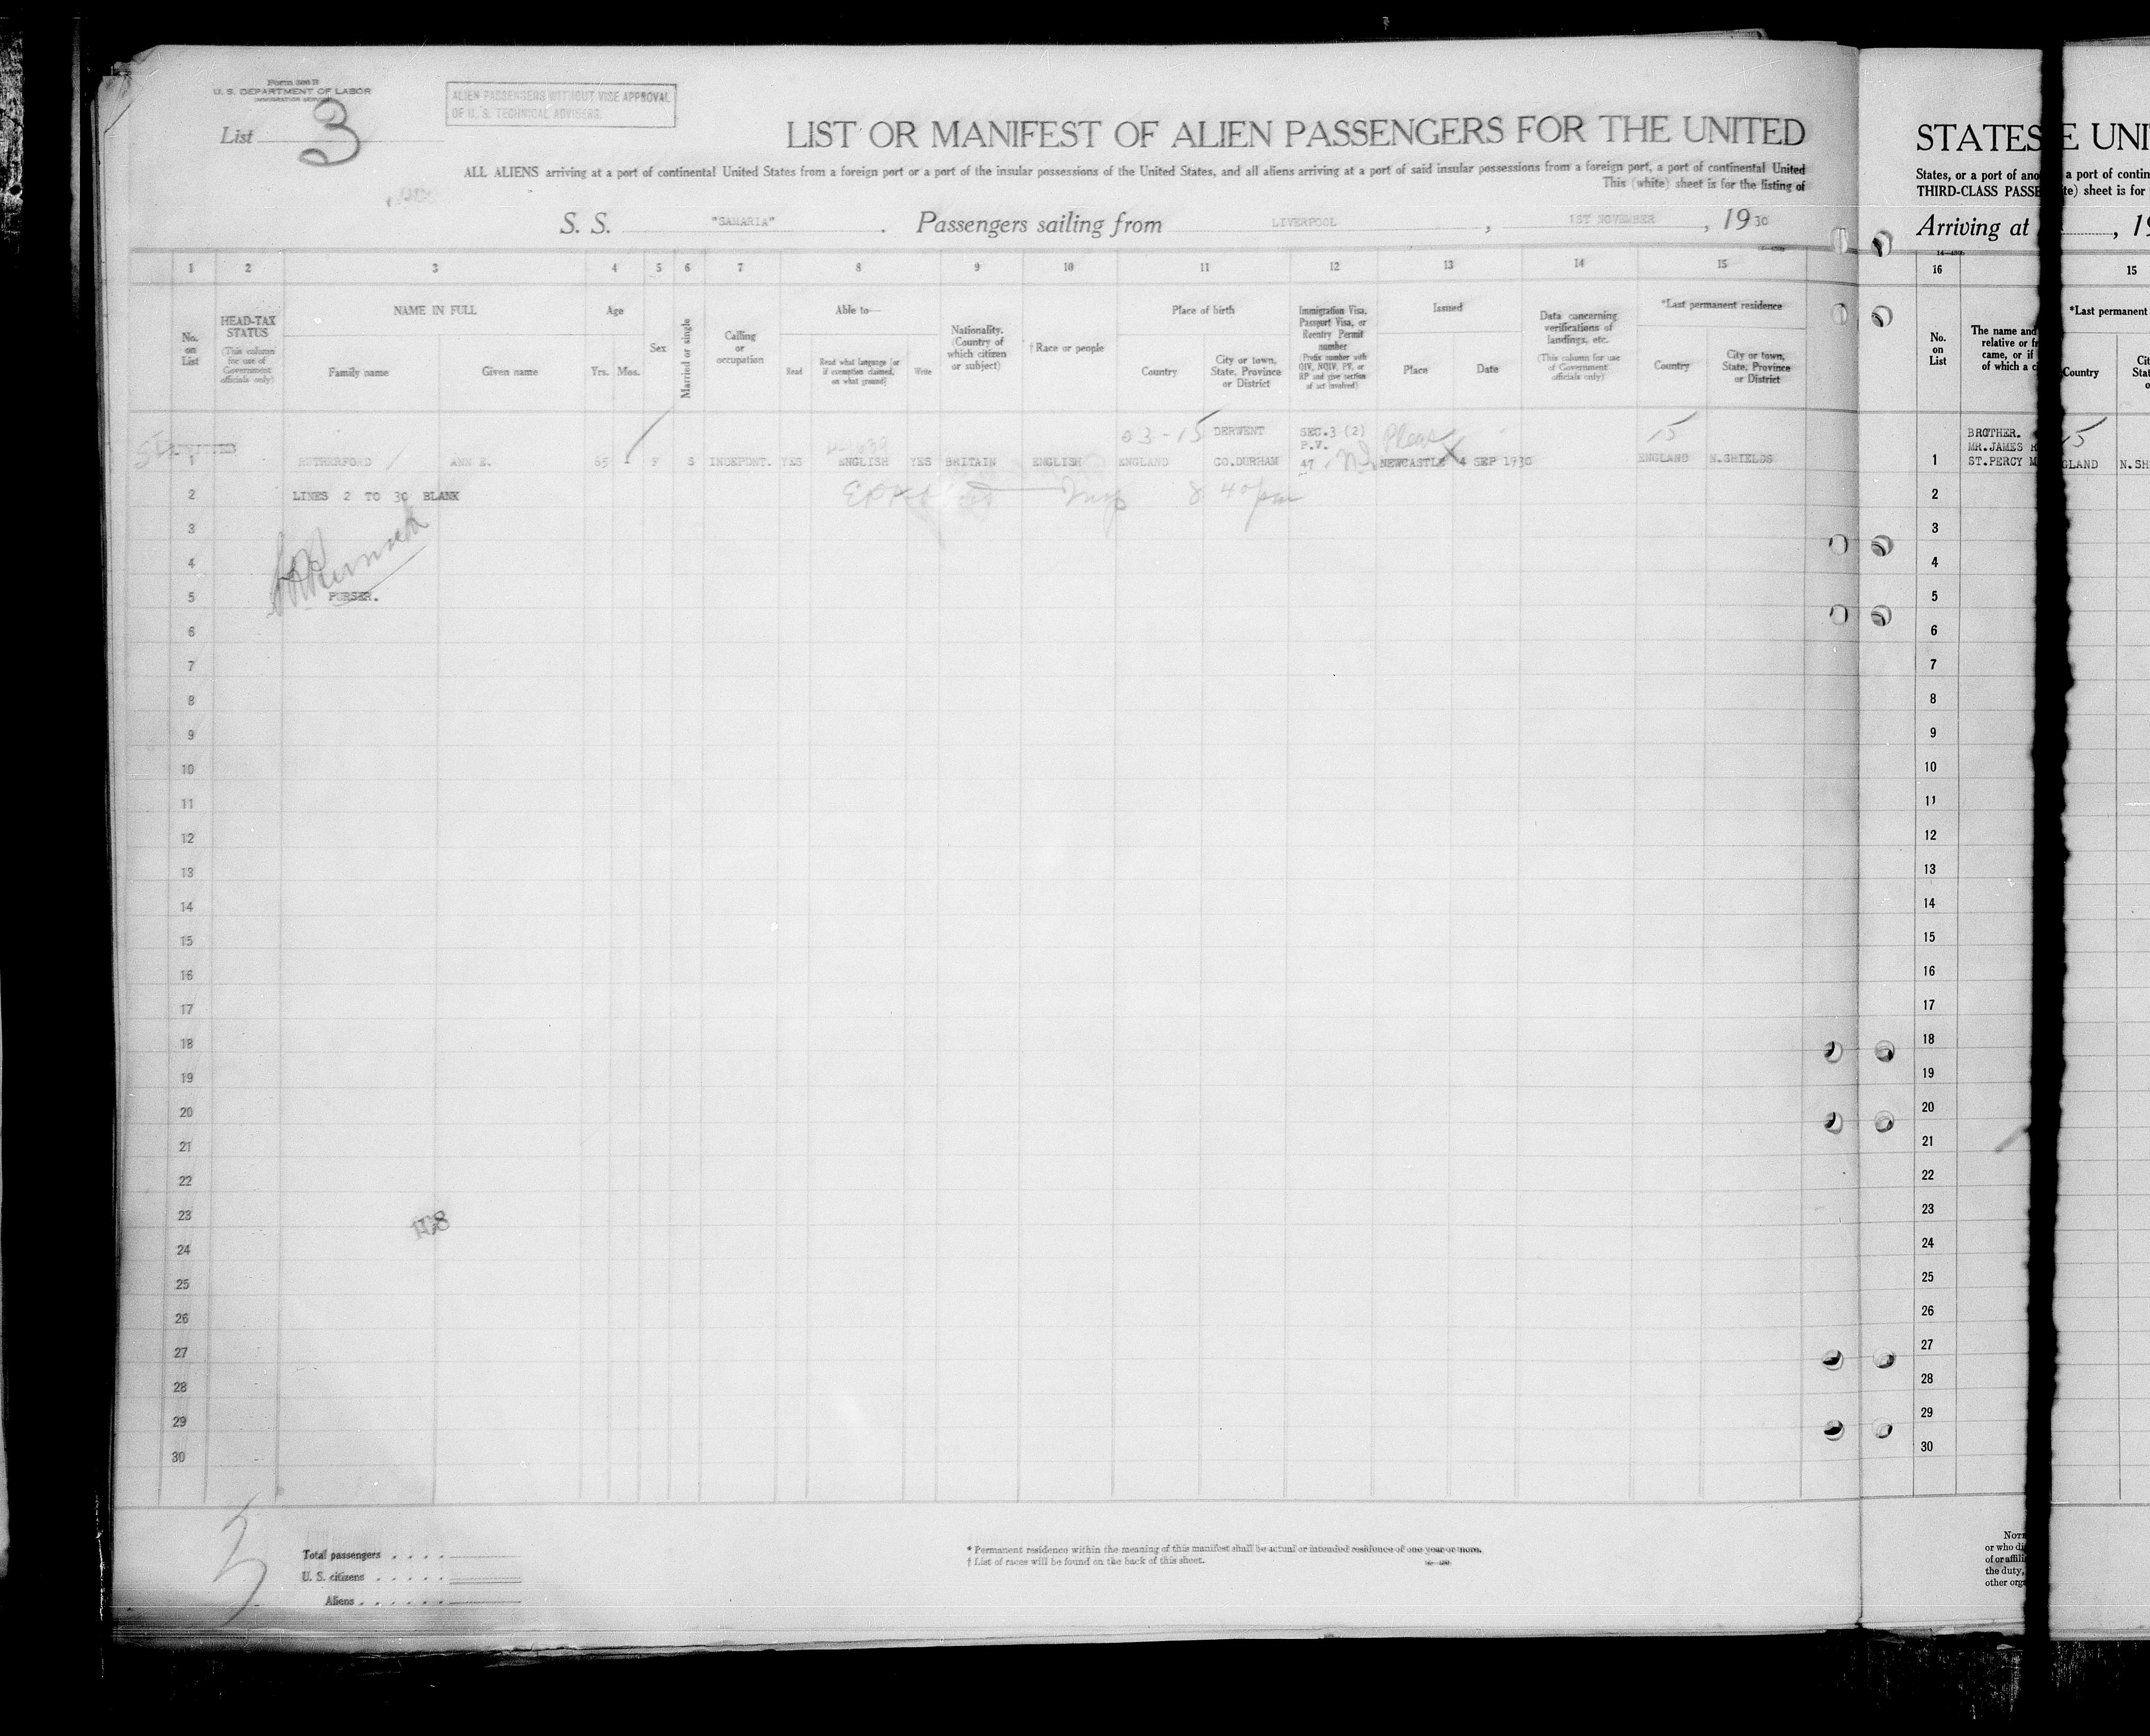 Form 500 B
U. S. DEPARTMENT OF LABOR
IMMIGRATION SERVICE
List 3
ALIEN PASSENGERS WITHOUT VISE APPROVAL
OF U. S. TECHNICAL ADVISERS.
LIST OR MANIFEST OF ALIEN PASSENGERS FOR THE UNITED
ALL ALIENS arriving at a port of continental United States from a foreign port or a port of the insular possessions of the United States, and all aliens arriving at a port of said insular possessions from a foreign port, a port of continental United
This (white) sheet is for the listing of
S. S. "SAMARIA". Passengers sailing from LIVERPOOL, 1ST NOVEMBER, 1930
1 2 3 4 5 6 7 8 9 10 11 12 13 14 15
No. on List
HEAD-TAX STATUS
(This column for use of Government officials only)
NAME IN FULL
Family name Given name
Age
Yrs. Mos.
Sex
Married or single
Calling or occupation
Able to—
Read
Read what language [or if exemption claimed, on what ground]
Write
Nationality. (Country of which citizen or subject)
† Race or people
Place of birth
Country
City or town, State, Province or District
Immigration Visa, Passport Visa, or Reentry Permit number
(Prefix number with QIV, NQIV, PV, or RP and give section of act involved)
Issued
Place Date
Data concerning verifications of landings, etc.
(This column for use of Government officials only)
*Last permanent residence
Country
City or town, State, Province or District
03-15 DERWENT SEC.3 (2) 15
P.V.
1 RUTHERFORD ANN E. 65 - F S INDEPDNT. YES ENGLISH YES BRITAIN ENGLISH ENGLAND CO.DURHAM 47 NEWCASTLE 4 SEP 1930 ENGLAND N.SHIELDS
2 LINES 2 TO 30 BLANK 8 40 pm
3
4
5 PURSER.
6
7
8
9
10
11
12
13
14
15
16
17
18
19
20
21
22
23
24
25
26
27
28
29
30
108
3
Total passengers
U. S. citizens
Aliens
* Permanent residence within the meaning of this manifest shall be actual or intended residence of one year or more.
† List of races will be found on the back of this sheet.
STATES
States, or a port of ano
THIRD-CLASS PASSE
Arriving at
16
No. on List
The name and
relative or fr
came, or if
of which a c
BROTHER.
MR.JAMES R
1 ST.PERCY M
2
3
4
5
6
7
8
9
10
11
12
13
14
15
16
17
18
19
20
21
22
23
24
25
26
27
28
29
30
NOTE
or who di
of or affili
the duty,
other orga
E UNI
a port of contin
te) sheet is for
, 19
15
*Last permanent
Country
15
GLAND N.SH